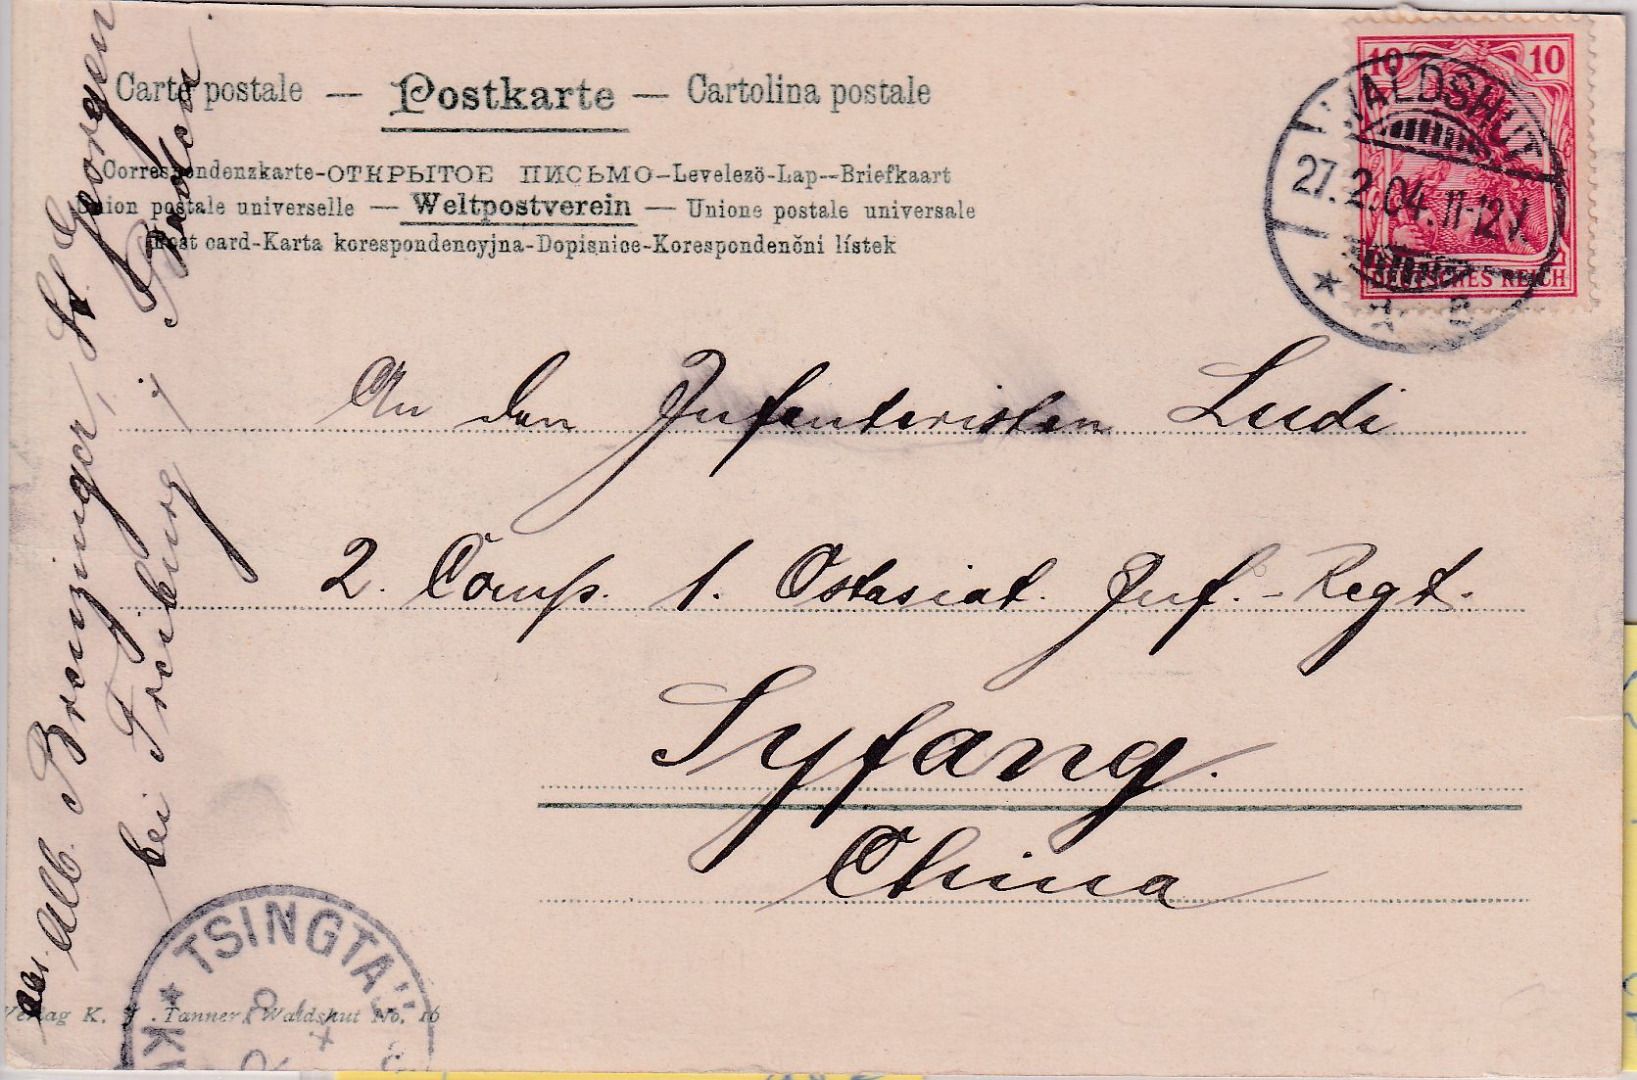 Carte postale — Postkarte — Cartolina postale
Correspondenzkarte-ОТКРЫТОЕ ПИСЬМО-Levelező-Lap--Briefkaart
Union postale universelle — Weltpostverein — Unione postale universale
Post card-Karta korespondencyjna-Dopisnice-Korespondenčni lístek
10 10
DEUTSCHES REICH
WALDSHUT
27.2.04.11-12V.
An den Infanteristen Ludi
2. Comp. 1. Ostasiat. Inf.-Regt.
Syfang.
China
Abs. Alb. Brenzinger, St Georgen
bei Freiburg i/ Baden.
TSINGTAU
Verlag K. Tanner, Waldshut No. 16